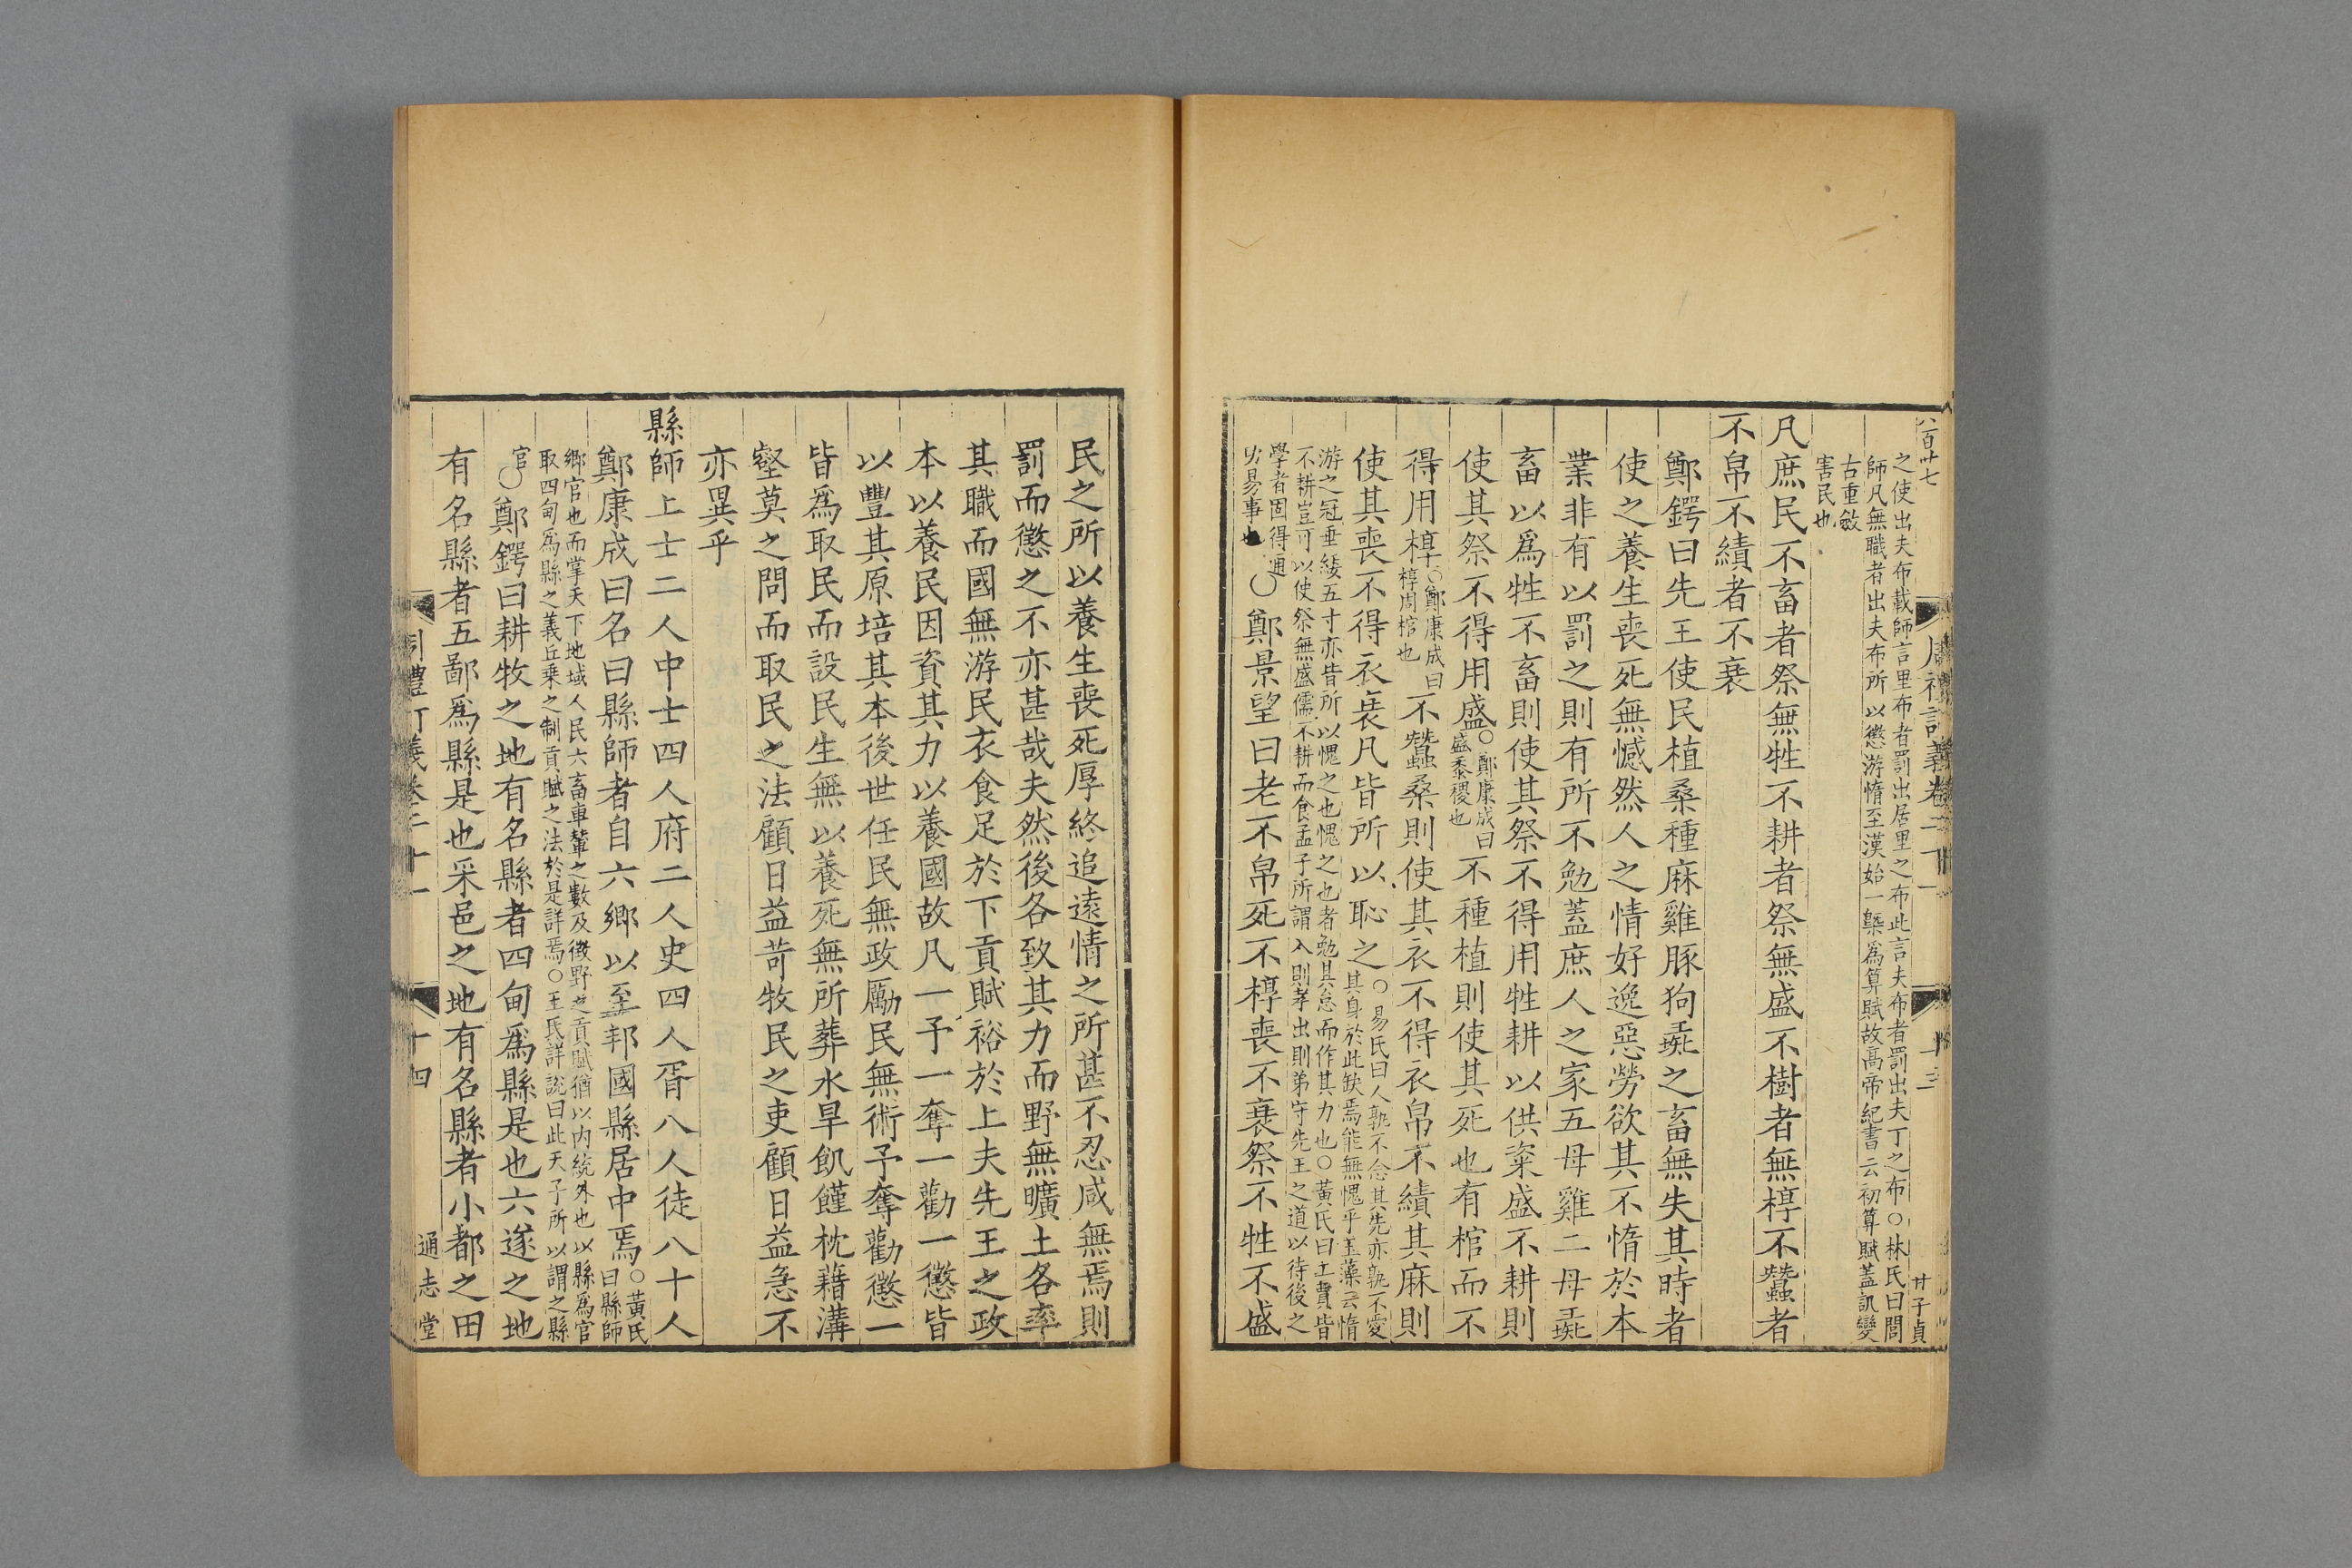 八百卅七
周禮訂義卷二十一
十三
廿子貞
之使出夫布載師言里布者罰出居里之布此言夫布者罰出夫丁之布○林氏曰閭
師凡無職者出夫布所以懲游惰至漢始一槩爲算賦故高帝紀書云初算賦蓋譏變
古重斂
害民也
凡庶民不畜者祭無牲不耕者祭無盛不樹者無椁不蠶者
不帛不績者不衰
鄭鍔曰先王使民植桑種麻雞豚狗彘之畜無失其時者
使之養生喪死無憾然人之情好逸惡勞欲其不惰於本
業非有以罰之則有所不勉蓋庶人之家五母雞二母彘
畜以爲牲不畜則使其祭不得用牲耕以供粢盛不耕則
使其祭不得用盛○鄭康成曰盛黍稷也不種植則使其死也有棺而不
得用椁○鄭康成曰椁周棺也不蠶桑則使其衣不得衣帛不績其麻則
使其喪不得衣衰凡皆所以恥之○易氏曰人孰不念其先亦孰不愛其身於此缺焉能無愧乎玉藻云惰
游之冠垂緌五寸亦皆所以愧之也愧之也者勉其怠而作其力也○黃氏曰士貴皆
不耕豈可以使祭無盛儒不耕而食孟子所謂入則孝出則弟守先王之道以待後之
學者固得通
功易事也○鄭景望曰老不帛死不椁喪不衰祭不牲不盛
民之所以養生喪死厚終追遠情之所甚不忍咸無焉則
罰而懲之不亦甚哉夫然後各致其力而野無曠土各率
其職而國無游民衣食足於下貢賦裕於上夫先王之政
本以養民因資其力以養國故凡一予一奪一勸一懲皆
以豐其原培其本後世任民無政勵民無術予奪勸懲一
皆爲取民而設民生無以養死無所葬水旱飢饉枕藉溝
壑莫之問而取民之法顧日益苛牧民之吏顧日益急不
亦異乎
縣師上士二人中士四人府二人史四人胥八人徒八十人
鄭康成曰名曰縣師者自六鄉以至邦國縣居中焉○黃氏曰縣師
鄉官也而掌天下地域人民六畜車輦之數及徵野之貢賦猶以內統外也以縣爲官
取四甸爲縣之義丘乗之制貢賦之法於是詳焉○王氏詳說曰此天子所以謂之縣
官○鄭鍔曰耕牧之地有名縣者四甸爲縣是也六遂之地
有名縣者五鄙爲縣是也采邑之地有名縣者小都之田
周禮訂義卷二十一
十四
通志堂